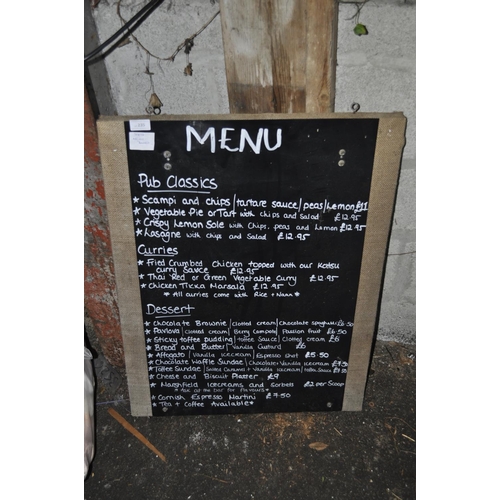 MENU
Pub Classics
* Scampi and chips/tartare sauce/peas/Lemon £11
* Vegetable Pie or Tart with chips and Salad £12.95
* Crispy Lemon Sole with Chips, peas and Lemon £12.95
* Lasagne with chips and Salad £12.95
Curries
* Fried Crumbed Chicken topped with our Katsu
curry Sauce £12.95
* Thai Red or Green Vegetable Curry £12.95
* Chicken Tikka Marsala £12.95
* All curries come with Rice + Naan *
Dessert
* Chocolate Brownie/Clotted cream/Chocolate spaghetti £6.50
* Pavlova/Clotted cream/Berry Compote/Passion Fruit £6.50
* Sticky toffee pudding/Toffee Sauce/Clotted cream £6
* Bread and Butter/Vanilla Custard £6
* Affogato/Vanilla icecream/Espresso shot £5.50
* Chocolate Waffle Sundae/Chocolate + Vanilla icecream £7.50
* Toffee Sundae/Salted Caramel + Vanilla icecream/Toffee Sauce £7.50
* Cheese and Biscuit Platter £9
* Marshfield Icecreams and Sorbets £2 per Scoop
* Ask at the bar for flavours *
* Cornish Espresso Martini £7.50
* Tea + Coffee Available *